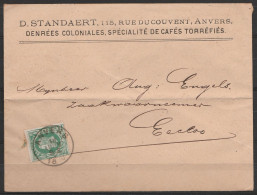 D. STANDAERT, 115, RUE DU COUVENT, ANVERS.
DENRÉES COLONIALES, SPÉCIALITÉ DE CAFÉS TORRÉFIÉS.
Mynheer Aug. Engels.
Zaakwaarnemer
Eecloo